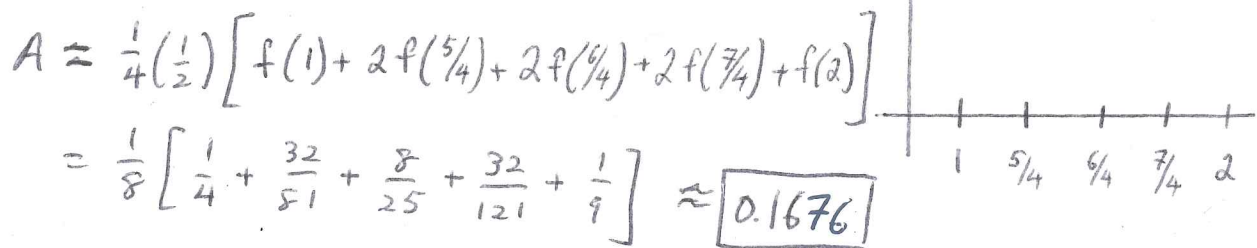 A ≈ 1/4(1/2)[f(1) + 2f(5/4) + 2f(6/4) + 2f(7/4) + f(2)]
= 1/8[1/4 + 32/81 + 8/25 + 32/121 + 1/9] ≈ 0.1676
1 5/4 6/4 7/4 2